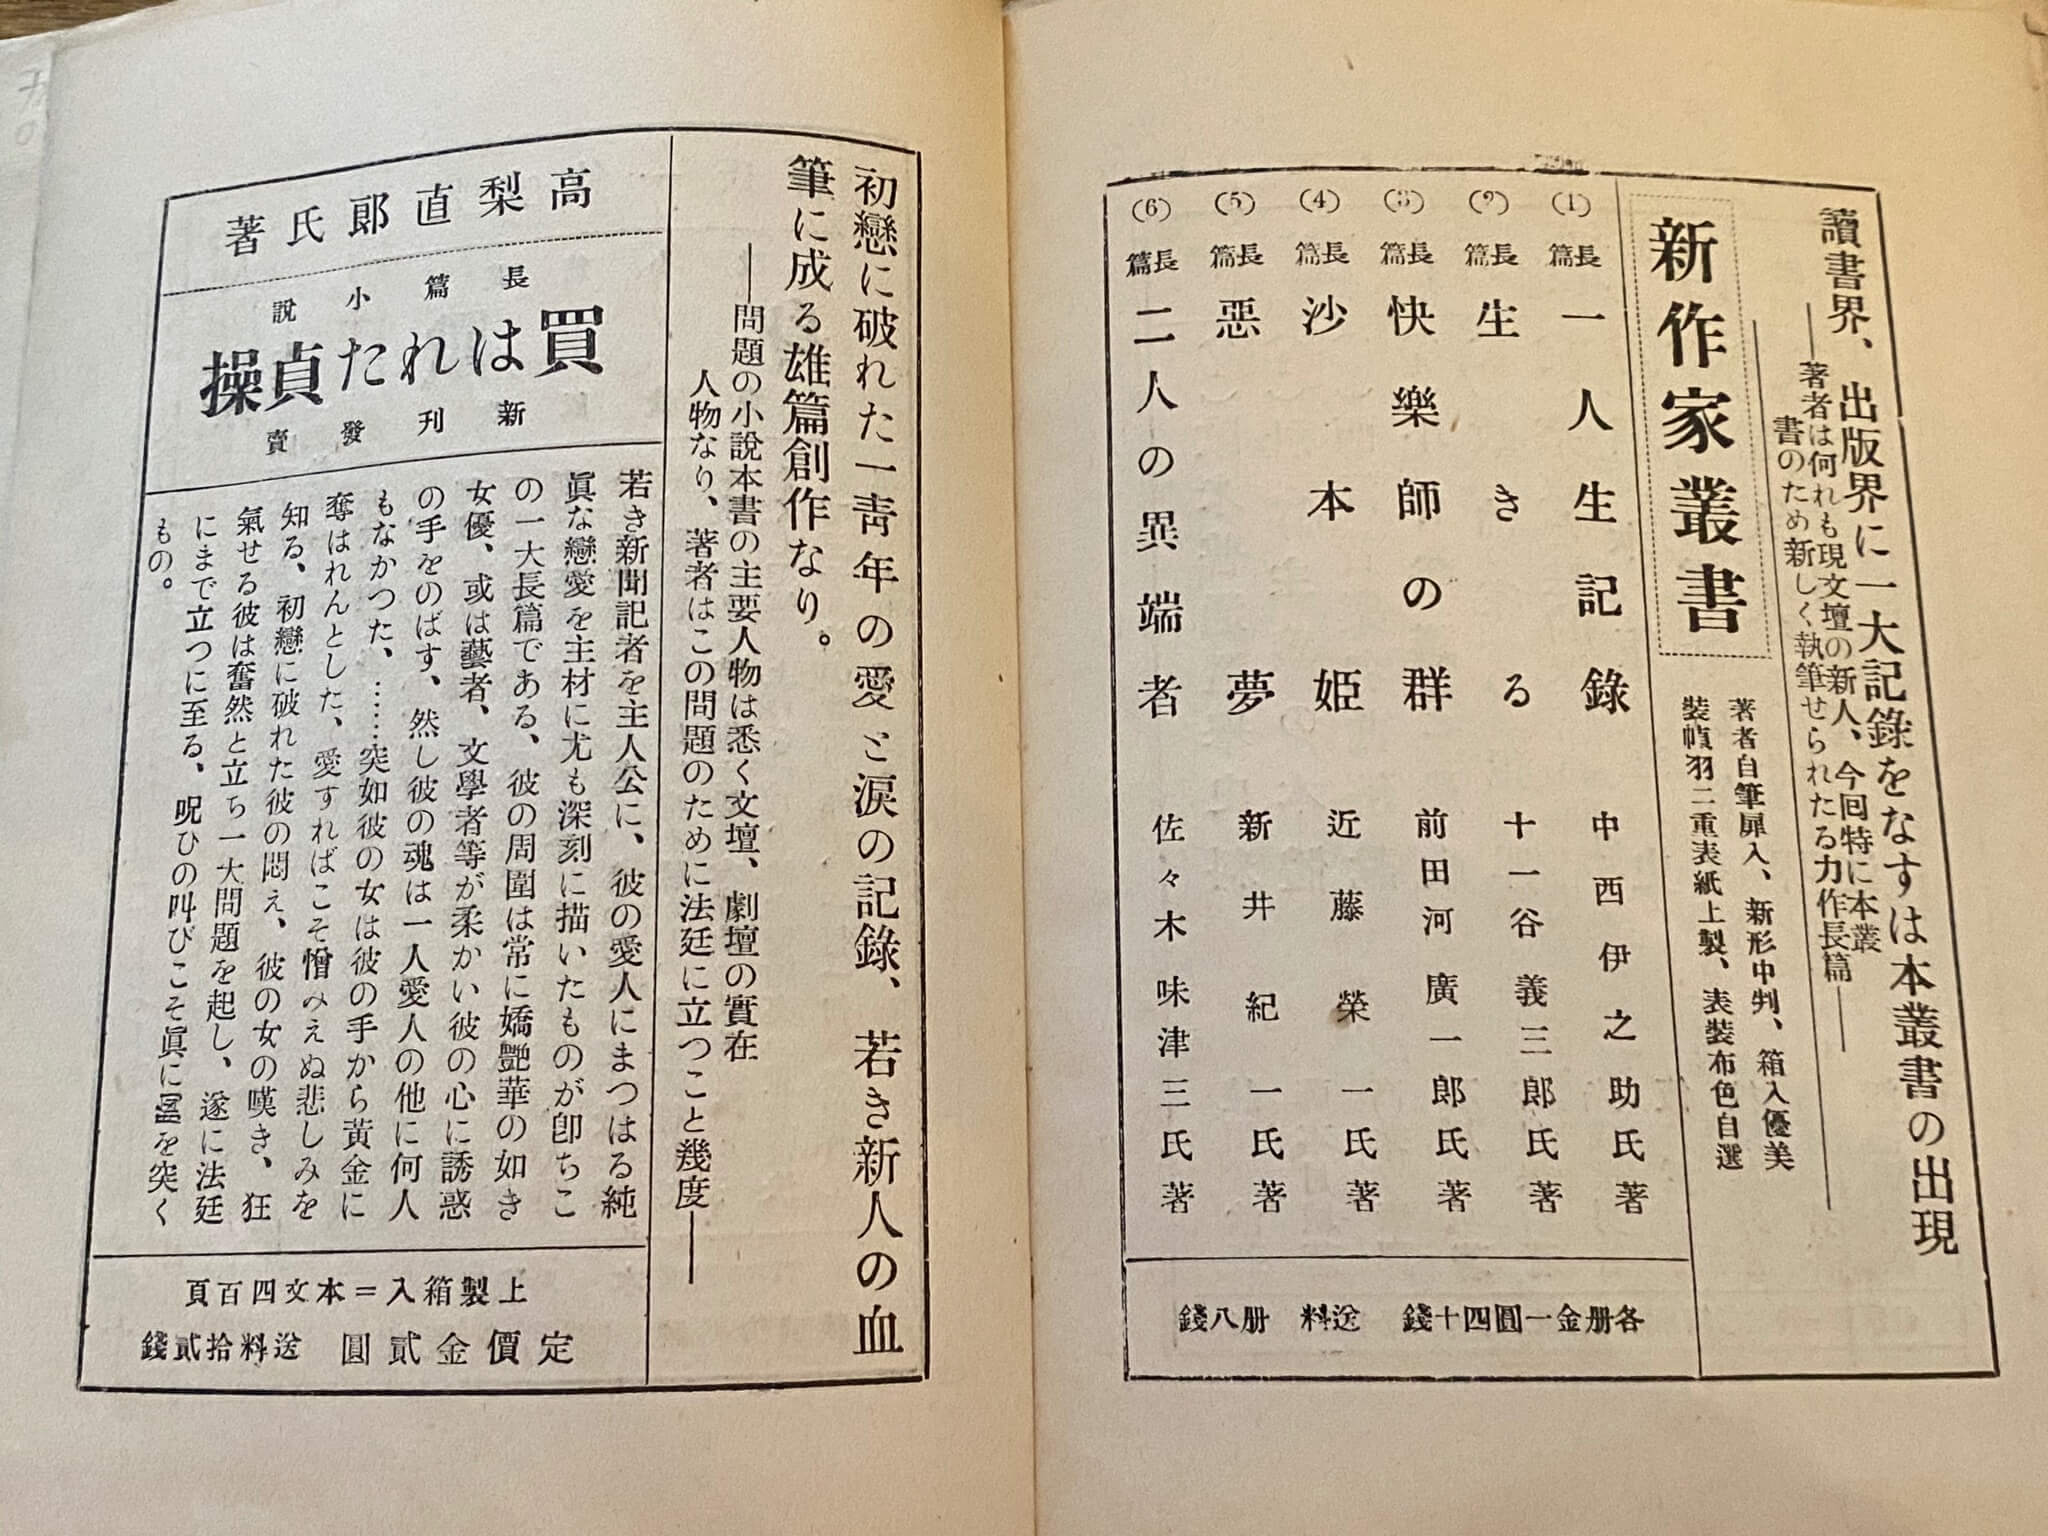 讀書界、出版界に一大記錄をなすは本叢書の出現
――著者は何れも現文壇の新人、今回特に本叢
書のため新しく執筆せられたる力作長篇――
新作家叢書
著者自筆扉入、新形中判、箱入優美
裝幀羽二重表紙上製、表裝布色自選
(1) 長篇 一人生記錄 中西伊之助氏著
(2) 長篇 生きる 十一谷義三郎氏著
(3) 長篇 快樂師の群 前田河廣一郎氏著
(4) 長篇 沙本姫 近藤榮一氏著
(5) 長篇 惡夢 新井紀一氏著
(6) 長篇 二人の異端者 佐々木味津三氏著
各册金一圓四十錢 送料 册八錢
初戀に破れた一靑年の愛と淚の記錄、若き新人の血
筆に成る雄篇創作なり。
――問題の小說本書の主要人物は悉く文壇、劇壇の實在
人物なり、著者はこの問題のために法廷に立つこと幾度――
高梨直郎氏著
長篇小說
買はれた貞操
新刊發賣
若き新聞記者を主人公に、彼の愛人にまつはる純
眞な戀愛を主材に尤も深刻に描いたものが卽ちこ
の一大長篇である、彼の周圍は常に嬌艶華の如き
女優、或は藝者、文學者等が柔かい彼の心に誘惑
の手をのばす、然し彼の魂は一人愛人の他に何人
もなかつた、……突如彼の女は彼の手から黃金に
奪はれんとした、愛すればこそ憎みえぬ悲しみを
知る、初戀に破れた彼の悶え、彼の女の嘆き、狂
氣せる彼は奮然と立ち一大問題を起し、遂に法廷
にまで立つに至る、呪ひの叫びこそ眞に을突く
もの。
上製箱入＝本文四百頁
定價金貳圓 送料拾貳錢